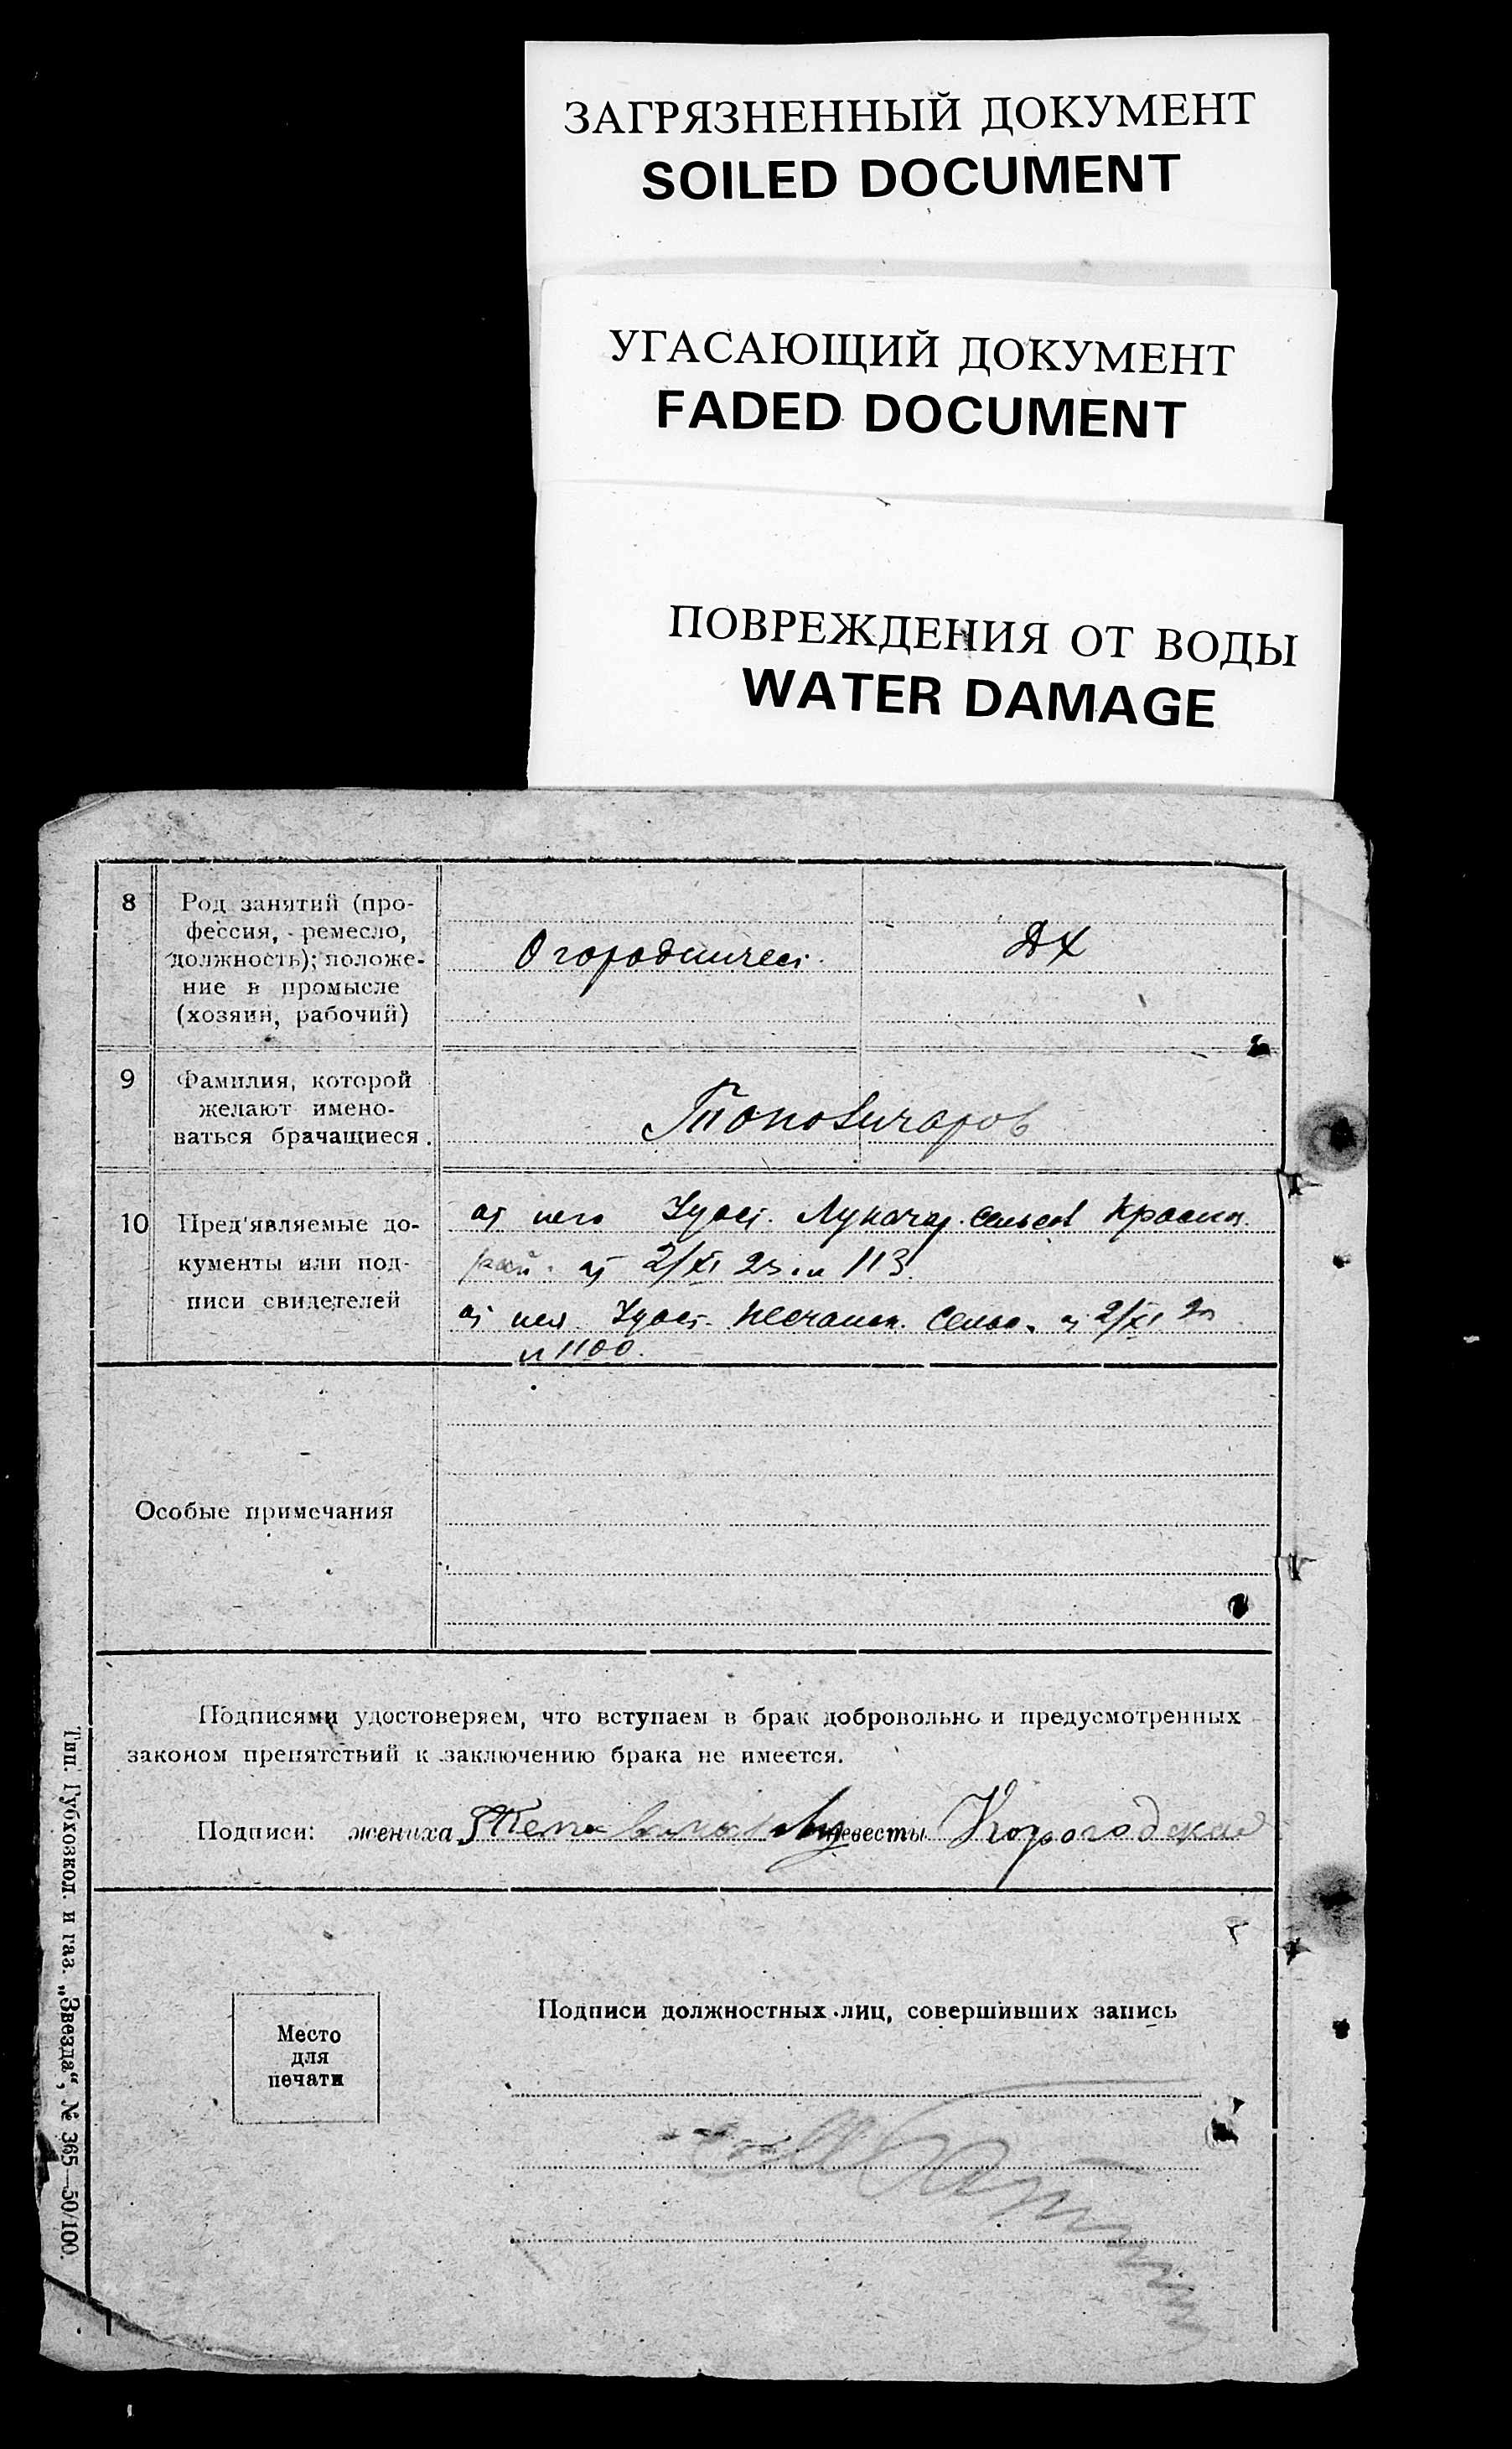 ЗАГРЯЗНЕННЫЙ ДОКУМЕНТ
SOILED DOCUMENT
УГАСАЮЩИЙ ДОКУМЕНТ
FADED DOCUMENT
ПОВРЕЖДЕНИЯ ОТ ВОДЫ
WATER DAMAGE
8
Род занятий (про-
фессия, ремесло,
должность); положе-
ние в промысле
(хозяин, рабочий)
ДХ
9
Фамилия, которой
желают имено-
ваться брачащиеся.
10
Пред'являемые до-
кументы или под-
писи свидетелей
от него Удост. Красин.
рай. от 2/XI 23 н 113.
от нея Удост. Песчанск. Сельс. от 2/XI
н 1100.
Особые примечания
Подписями удостоверяем, что вступаем в брак добровольно и предусмотренных
законом препятствий к заключению брака не имеется.
Подписи: жениха невесты Корогодская
Место
для
печати
Подписи должностных лиц, совершивших запись
Тип. Губхозкол. и газ. „Звезда“, № 365—50/100.